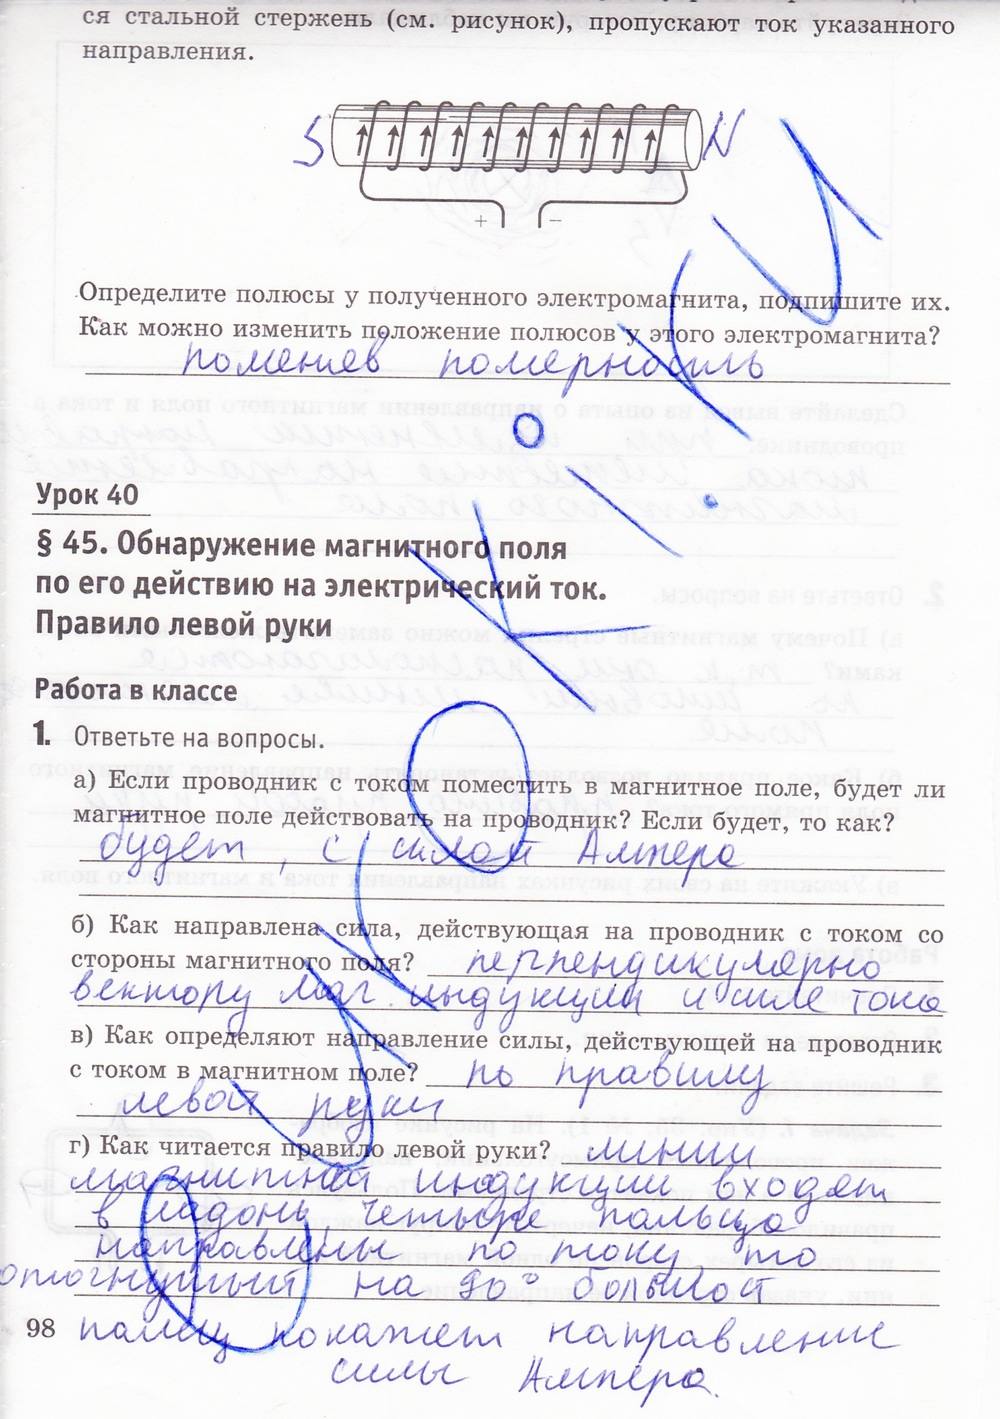 ся стальной стержень (см. рисунок), пропускают ток указанного
направления.
S N
+ −
Определите полюсы у полученного электромагнита, подпишите их.
Как можно изменить положение полюсов у этого электромагнита?
поменяв полярность
Урок 40
§ 45. Обнаружение магнитного поля
по его действию на электрический ток.
Правило левой руки
Работа в классе
1. Ответьте на вопросы.
а) Если проводник с током поместить в магнитное поле, будет ли
магнитное поле действовать на проводник? Если будет, то как?
будет, с силой Ампера
б) Как направлена сила, действующая на проводник с током со
стороны магнитного поля? перпендикулярно
вектору маг. индукции и силе тока
в) Как определяют направление силы, действующей на проводник
с током в магнитном поле? по правилу
левой руки
г) Как читается правило левой руки? линии
магнитной индукции входят
в ладонь, четыре пальца
направлены по току то
отогнутый на 90° большой
98 палец покажет направление
силы Ампера.